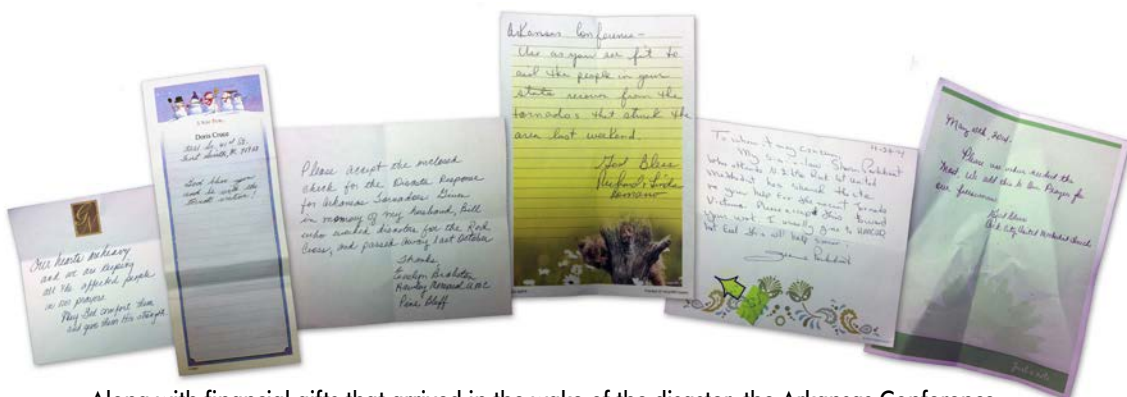 Our hearts are heavy
and we are keeping
all the affected people
in our prayers.
May God comfort them
and give them His strength.
A Note From...
Doris Cross
God bless you
and be with the
Please accept the enclosed
check for the Disaster Response
for Arkansas Tornadoes Given
in memory of my husband, Bill
who worked disaster for the Red
Cross, and passed away last October
Thanks,
Evelyn
Hawley Memorial UMC
Pine Bluff
Arkansas Conference-
Use as you see fit to
aid the people in your
state recover from the
tornados that struck the
area last weekend.
God Bless
Richard & Linda
To whom it may concern,
My sis-in-law
who attends
Methodist has shared the site
for the recent Tornado
Victims. Please accept this toward
your work. I usually give to UMCOR
but feel this will help sooner.
May
Please use where needed the
Most. We all thank you Prayer for
our
God Bless
United Methodist Church
Just a note
Along with financial gifts that arrived in the wake of the disaster, the Arkansas Conference